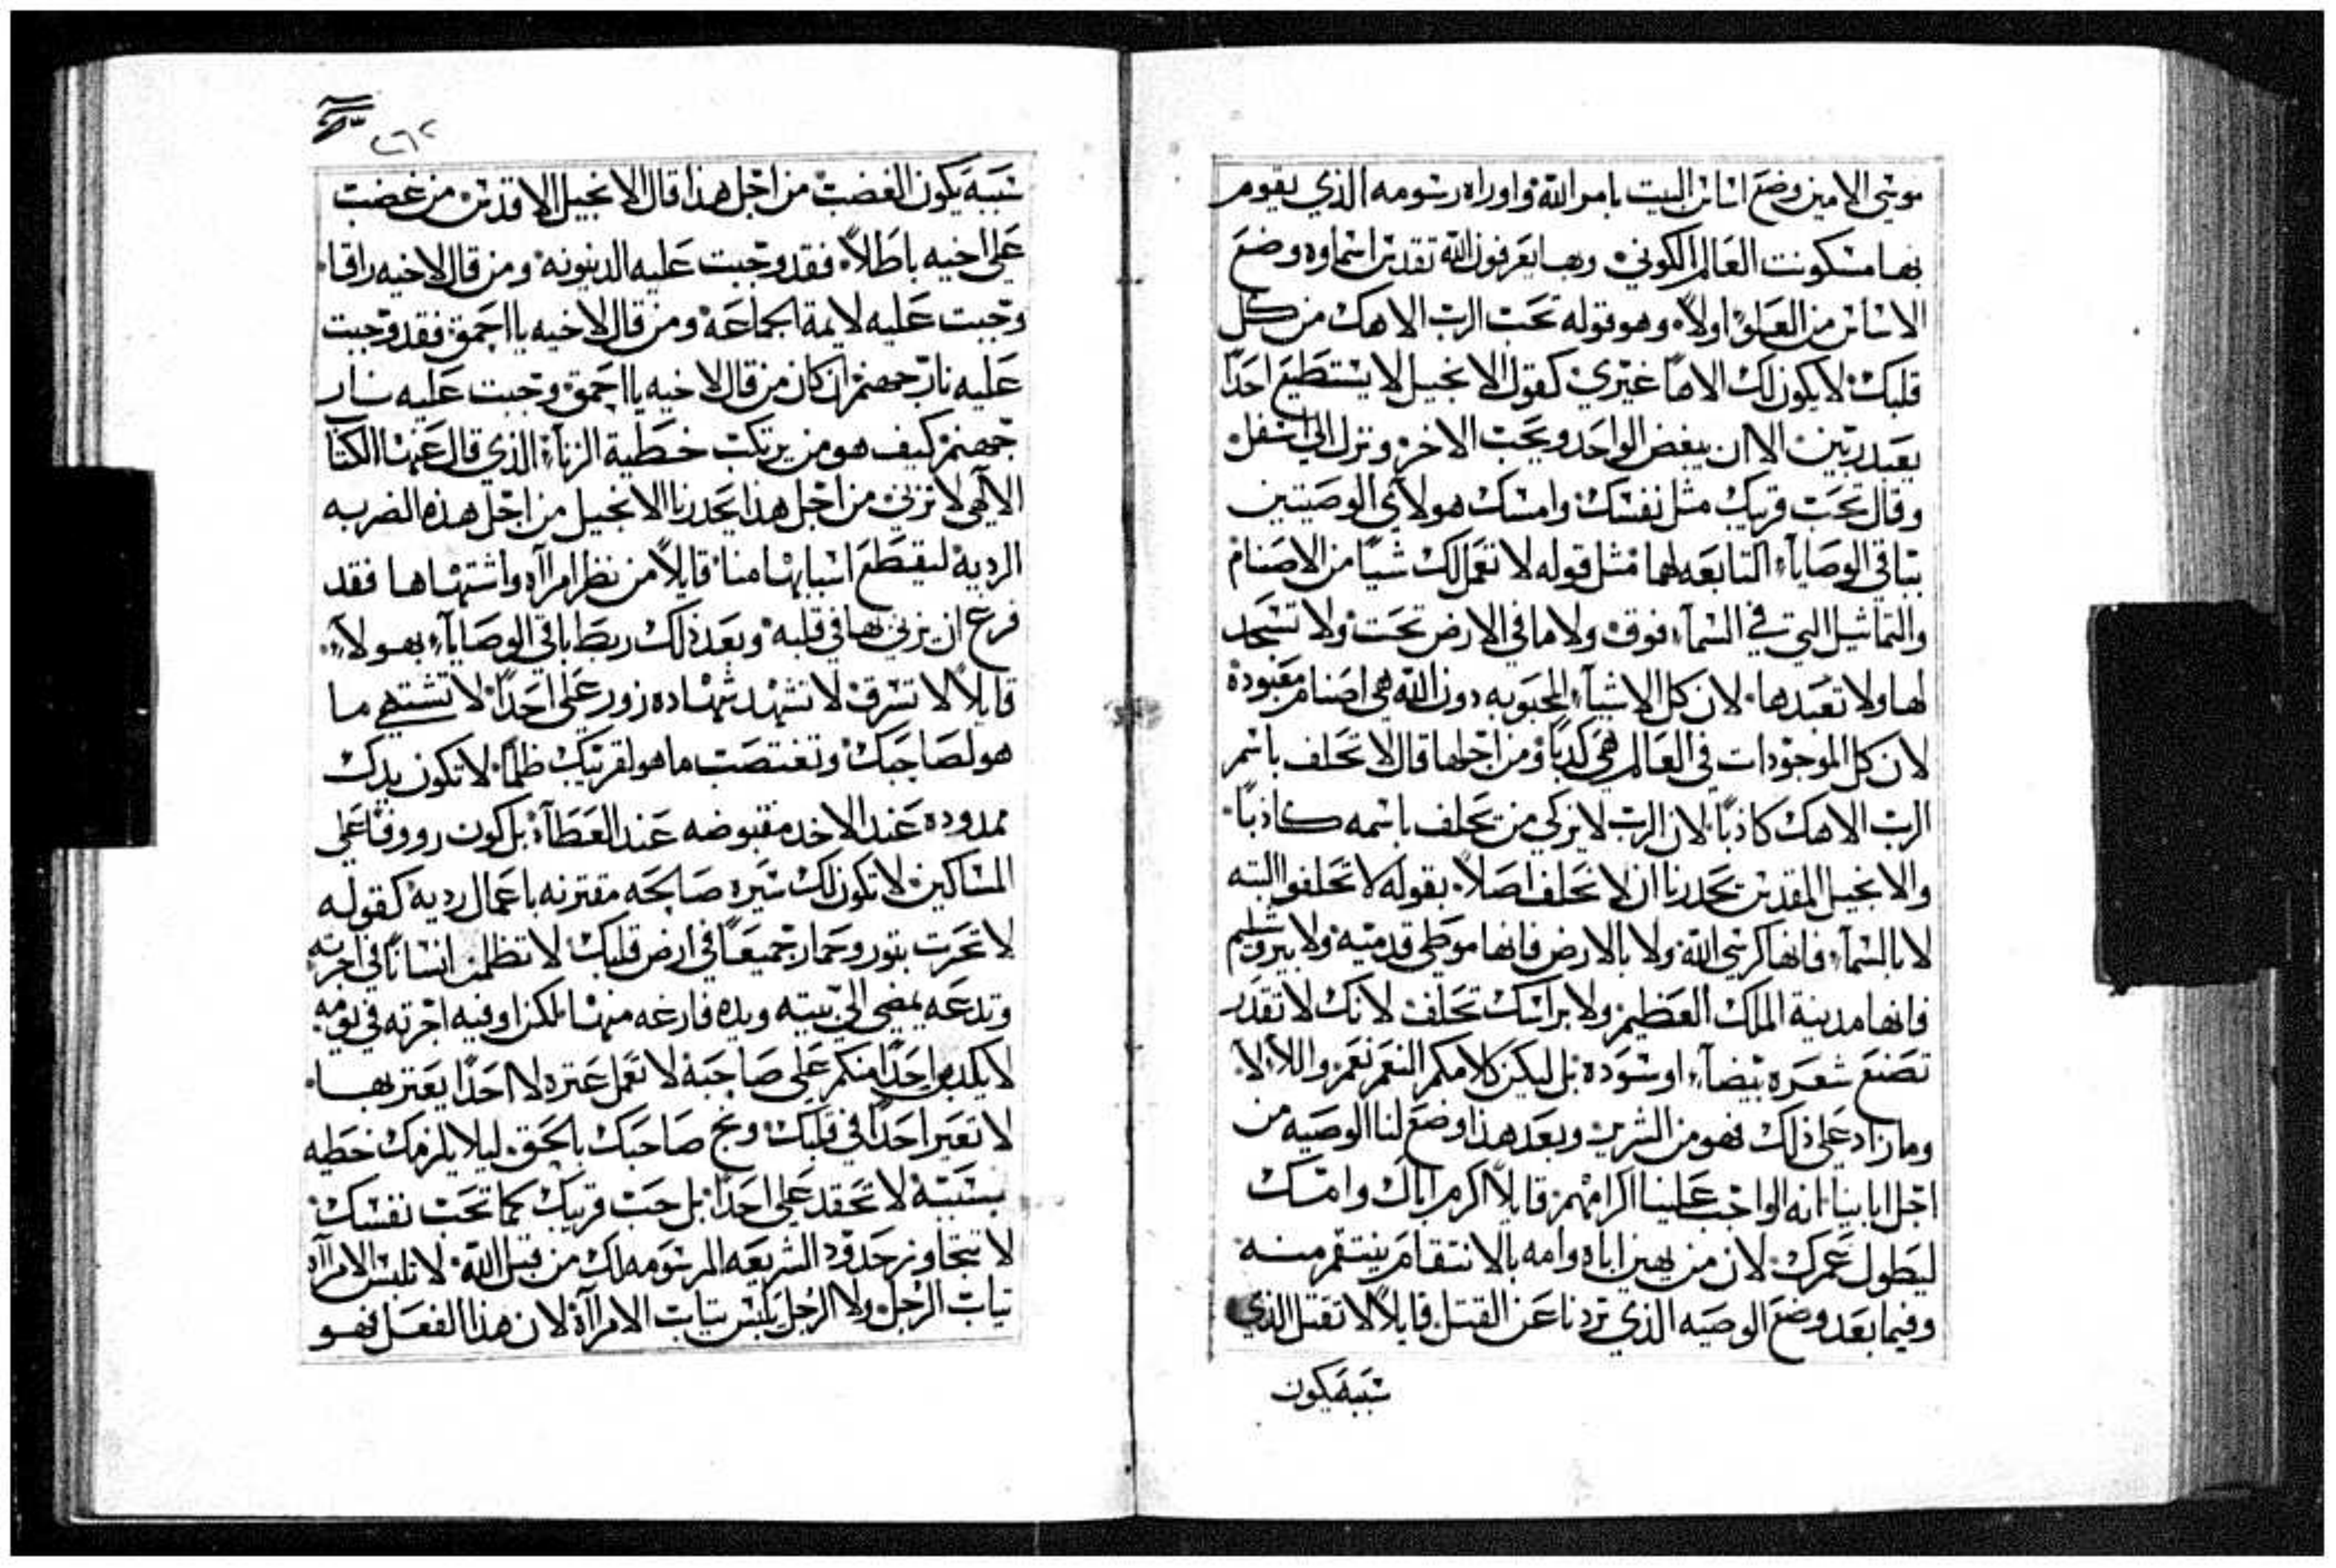 موسى الامين وضع اساس البيت بامر الله واوراه رسومه الذي يقوم
بها مسكونت العالم الكوني وبها يعرفون الله تقدس اسماوه وضع
الاساس من العلو اولاً وهو قوله تحب الرب الاهك من كل
قلبك لا يكون لك الاهاً غيري كقول الانجيل لا يستطيع احداً
يعبد ربين الا ان يبغض الواحد ويحب الاخر ونزل الى اسفل
وقال تحب قريبك مثل نفسك وامسك هولاي الوصيتين
بباقي الوصايا التابعه لهما مثل قوله لا تعمل لك شياً من الاصنام
والتماثيل التي في السمآء فوق ولا ما في الارض تحت ولا تسجد
لها ولا تعبدها لان كل الاشيآء المحبوبه دون الله هي اصنام معبودة
لان كل الموجودات في العالم هي كدباً ومن اجلها قال لا تحلف باسم
الرب الاهك كاذباً لان الرب لا يزكي من يحلف باسمه كاذباً
والانجيل المقدس يحدرنا ان لا نحلف اصلاً بقوله لا تحلفوا البته
لا بالسمآء فانها كرسي الله ولا بالارض فانها موطي قدميه ولا بيروشليم
فانها مدينة الملك العظيم ولا براسك تحلف لانك لا تقدر
تصنع شعره بيضآء او سوده بل ليكن كلامكم النعم نعم واللا لا
وما زاد على ذلك فهو من الشرير وبعد هذا وضع لنا الوصيه من
اجل اباينا انه الواجب علينا اكرامهم قايلاً اكرم اباك وامك
ليطول عمرك لان من يهين اباه وامه بالانتقام ينتقم منه
وفيما بعد وضع الوصيه الذي تردنا عن القتل قايلاً لا تقتل الذي
سببه يكون
٢٦٢
سببه يكون الغضب من اجل هذا قال الانجيل الاقدس من غضب
على اخيه باطلاً فقد وجبت عليه الدينونه ومن قال لاخيه راقا
وجبت عليه لايمة الجماعة ومن قال لاخيه يا احمق فقد وجبت
عليه نار جهنم ان كان من قال لاخيه يا احمق وجبت عليه نار
جهنم كيف هو من يرتكب خطية الزنآء الذي قال عنها الكتاب
الآلهي لا تزني من اجل هذا يحدرنا الانجيل من اجل هذه الضربه
الرديه ليقطع اسبابها منا قايلاً من نظر امرآة واشتهاها فقد
فرغ ان يزني بها في قلبه وبعد ذلك ربط باقي الوصايآء بهولآء
قايلاً لا تسرق لا تشهد شهاده زور على احداً لا تشتهي ما
هو لصاحبك وتغتصب ما هو لقريبك ظلماً لا تكون يدك
ممدوده عند الاخد مقبوضه عند العطآء بل كون رووفاً على
المساكين لا تكون لك سيره صالحه مقترنه باعمال رديه كقوله
لا تحرت بتور وحمار جميعاً في ارض قلبك لا تظلم انساناً في اجرته
وتدعه يمضي الى بيته ويده فارغه منها لكن اوفيه اجرته في يومه
لا يكدب احداً منكم على صاحبه لا تعمل عتره لا احداً يعتر بها
لا تعير احداً في قلبك وبخ صاحبك بالحق ليلا يلزمك خطيه
بسببه لا تحقد على احداً بل حب قريبك كما تحب نفسك
لا تتجاوز حدود الشريعه المرسومه لك من قبل الله لا تلبس الامرآة
تياب الرجل ولا الرجل يلبس تياب الامرآة لان هذا الفعل فهو